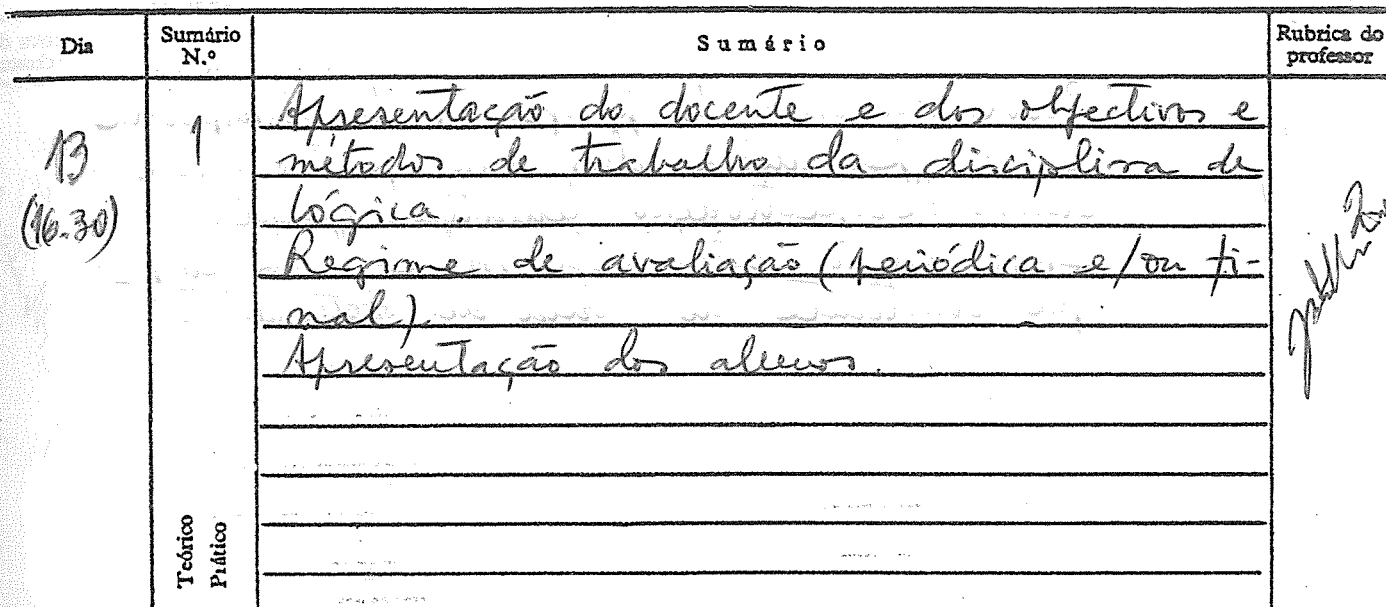 Dia
Sumário N.º
Sumário
Rubrica do professor
13
(16.30)
1
Apresentação do docente e dos objectivos e
métodos de trabalho da disciplina de
lógica.
Regime de avaliação (periódica e/ou fi-
nal).
Apresentação dos alunos.
Teórico
Prático